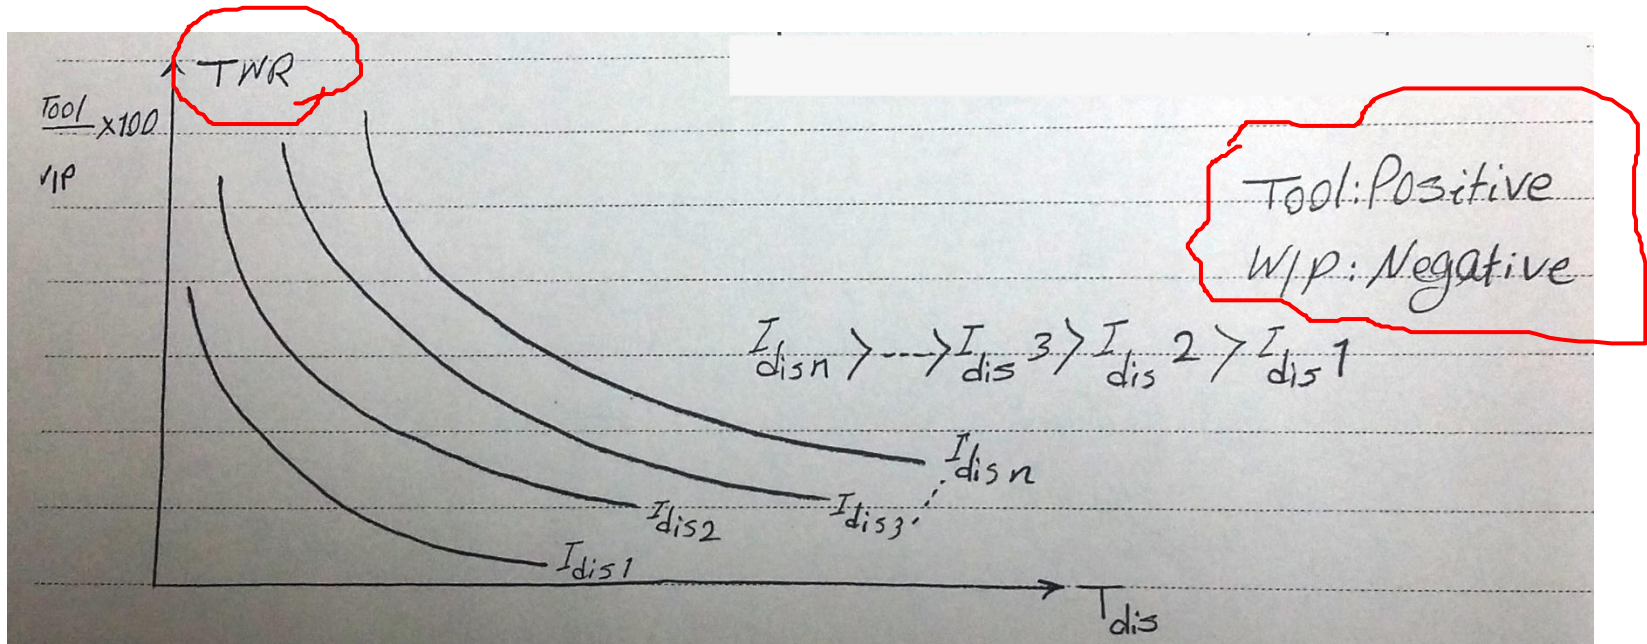 TWR
Tool
×100
W/P
Tool: Positive
W/P: Negative
I dis n > ----> I dis 3 > I dis 2 > I dis 1
I dis n
I dis 3
I dis 2
I dis 1
T dis